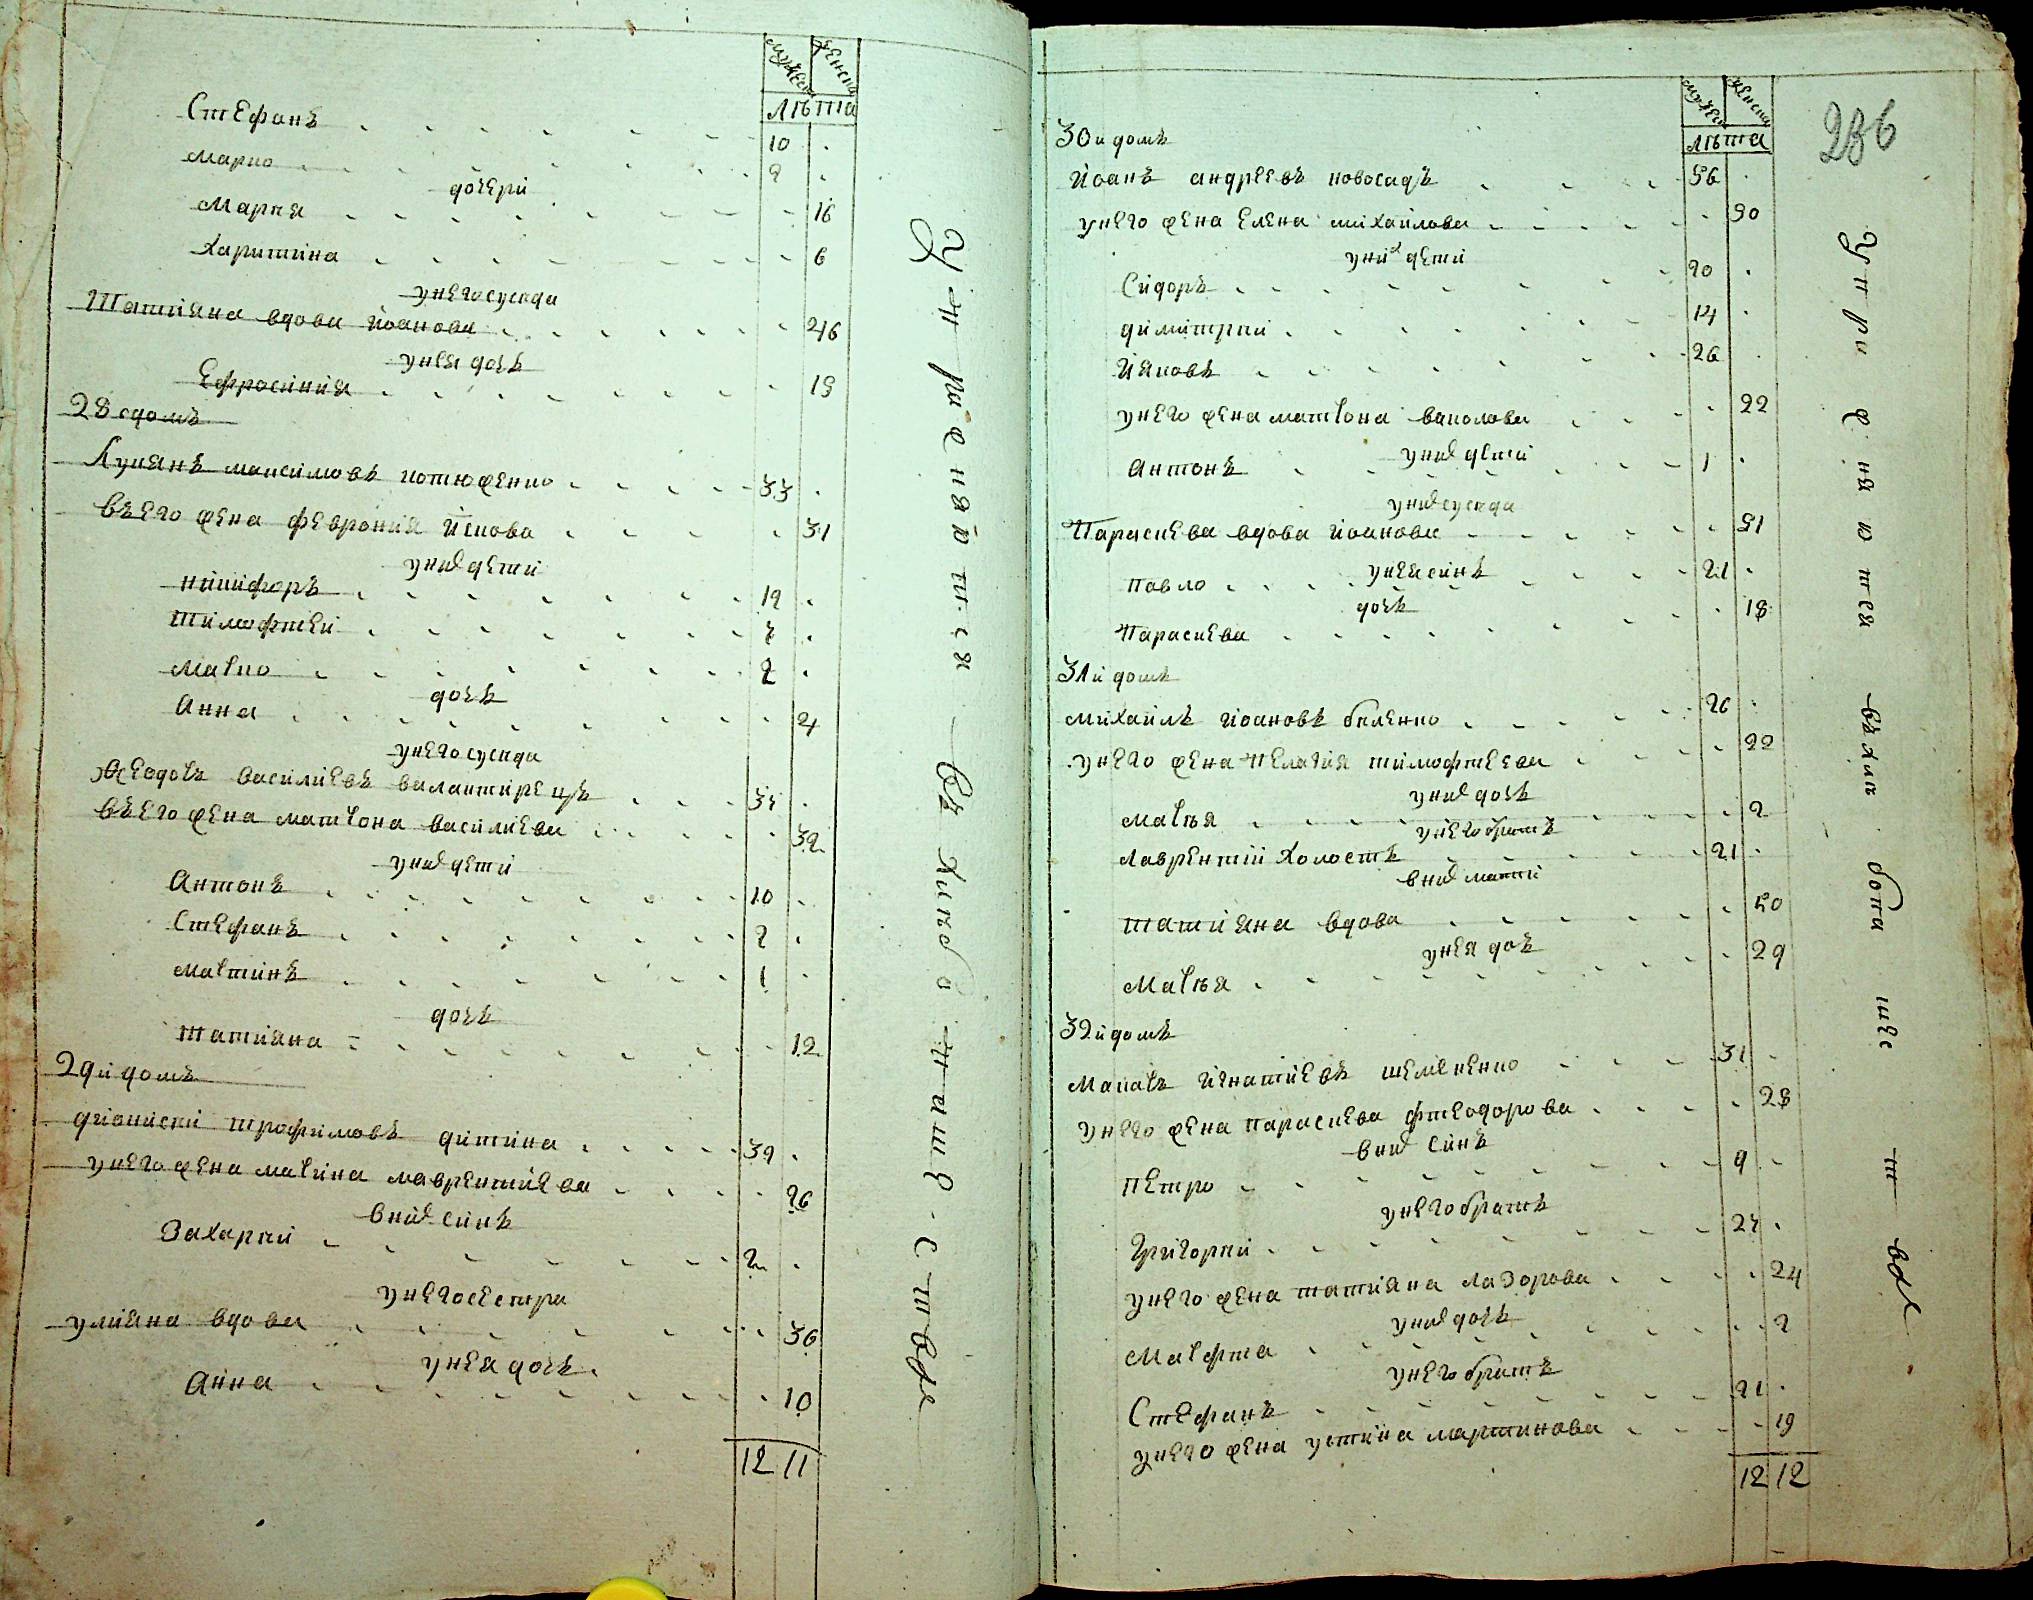 мужеск женски
лѣта
Стефанъ 10
Марко 2
дочери
Марія 16
Харитина 6
унего сусѣда
Татіяна вдова йоанова 46
унея дочь
Ефросинія 15
28й домъ
Лукянъ максимовъ
въего жена февронія 31
уних дети
никифоръ 12
тимофтей 7
Марко 2
дочь
Анна 4
унего сусѣда
Феодоръ василиевъ
въего жена матрона василиева 32
уних дети
Антонъ 10
Стефанъ 2
мартинъ 1
дочь
татіяна 12
29й домъ
діонисій трофимовъ дитина 39
унего жена марина лаврентіева 26
вних синъ
Захарій 2
унего сестра
уліяна вдова 36
унея дочь
Анна 10
12 11
мужеск женски
лѣта
286
30й домъ
Йоанъ андреевъ новосадъ 56
унего жена елена михайлова 50
уних дети
Сидоръ 20
димитрій 14
Йяковъ 26
унего жена матрона 22
уних дети
Антонъ 1
уних сусѣда
Параскева вдова йоанова 51
унея синъ
Павло 21
дочь
Параскева 18
31й домъ
михайлъ йоановъ 26
унего жена пелагія тимофтеева 22
уних дочь
марія 2
унего братъ
лаврентій холостъ 21
вних матти
татіяна вдова 50
унея дочь
Марія 29
32й домъ
Макаръ йгнатіевъ 31
унего жена параскева фтеодорова 28
вних синъ
Петро 9
унего братъ
Григорій 27
унего жена татіяна лазорова 24
уних дочь
Марфта 2
унего братъ
Стефанъ 21
унего жена устина мартинова 19
12 12